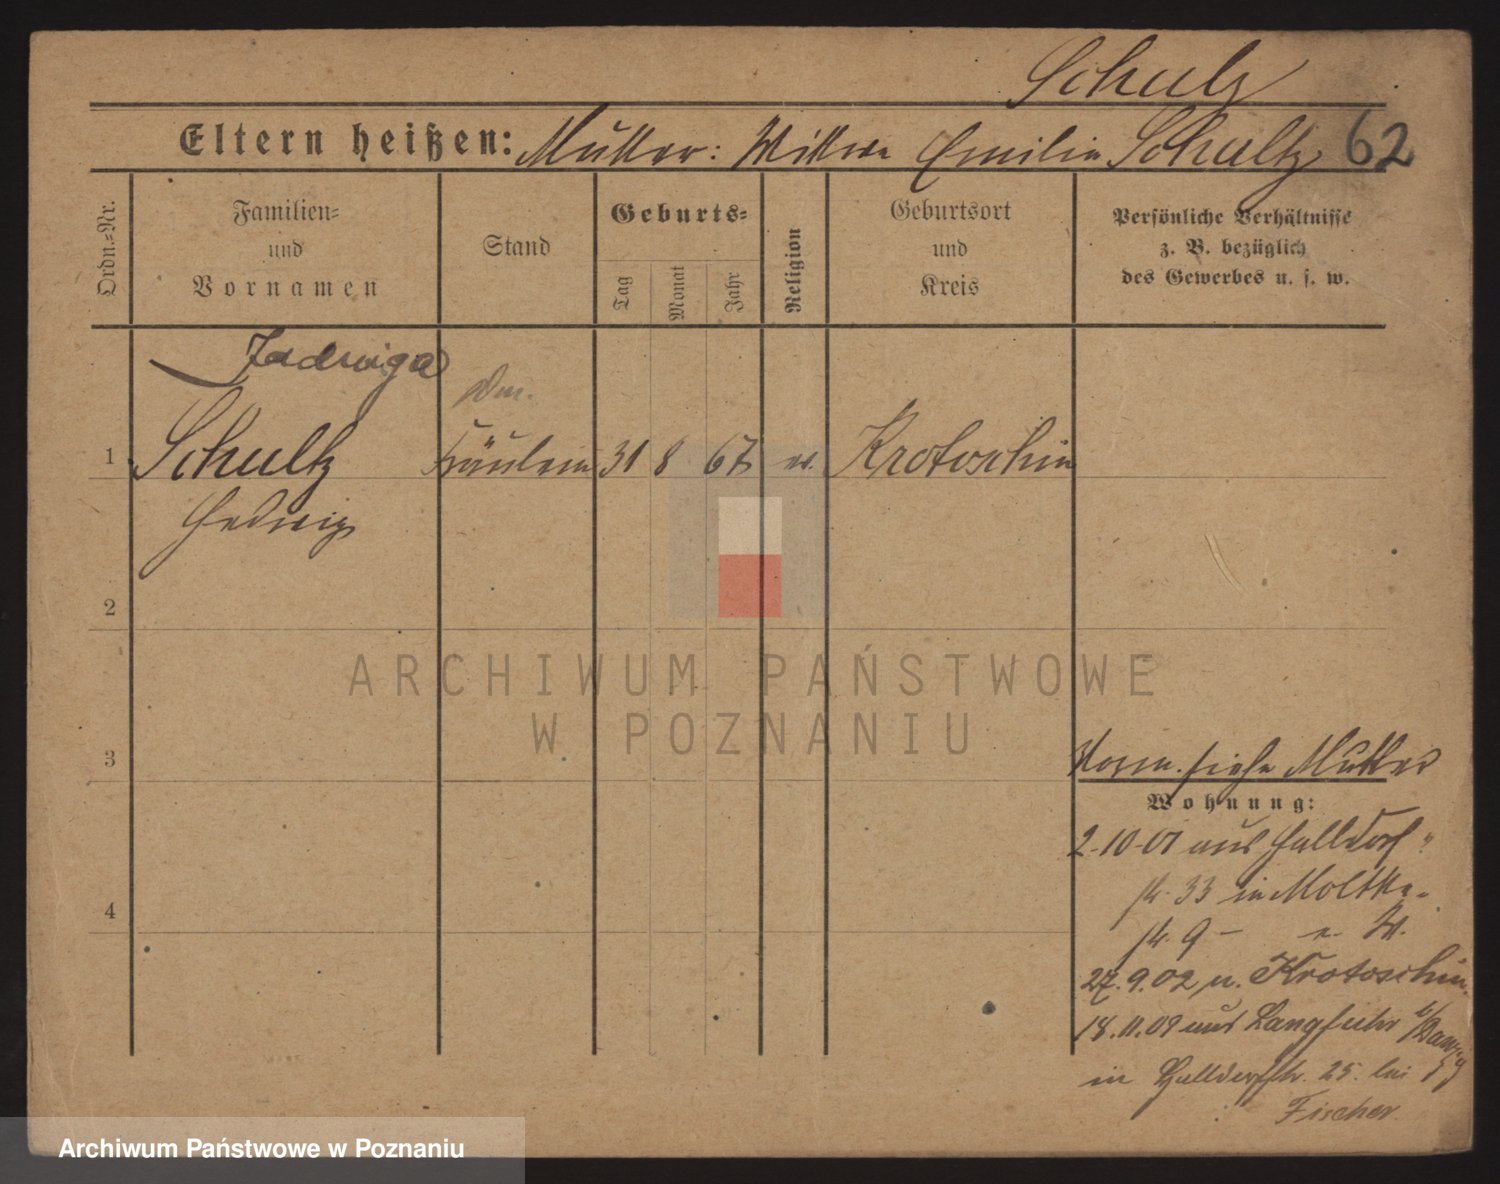 Schulz
Eltern heißen: Mutter: Wittwe Emilie Schultz 62
Ordn.-Nr.
Familien-
und
Vornamen
Stand
Geburts-
Tag
Monat
Jahr
Religion
Geburtsort
und
Kreis
Persönliche Verhältnisse
z. B. bezüglich
des Gewerbes u. s. w.
Jadwiga
1 Schultz Fräulein 31 8 67 ev. Krotoschin
Hedwig
2
3
4
ARCHIWUM PAŃSTWOWE
W POZNANIU
siehe Mutter
Wohnung:
2.10.01 aus Halldorf-
str. 33 in Moltke-
str. 9 -
27.9.02 n. Krotoschin.
18.11.09 aus Langfuhr b/Danzig
in Halldorfstr. 25. bei
Fischer.
Archiwum Państwowe w Poznaniu